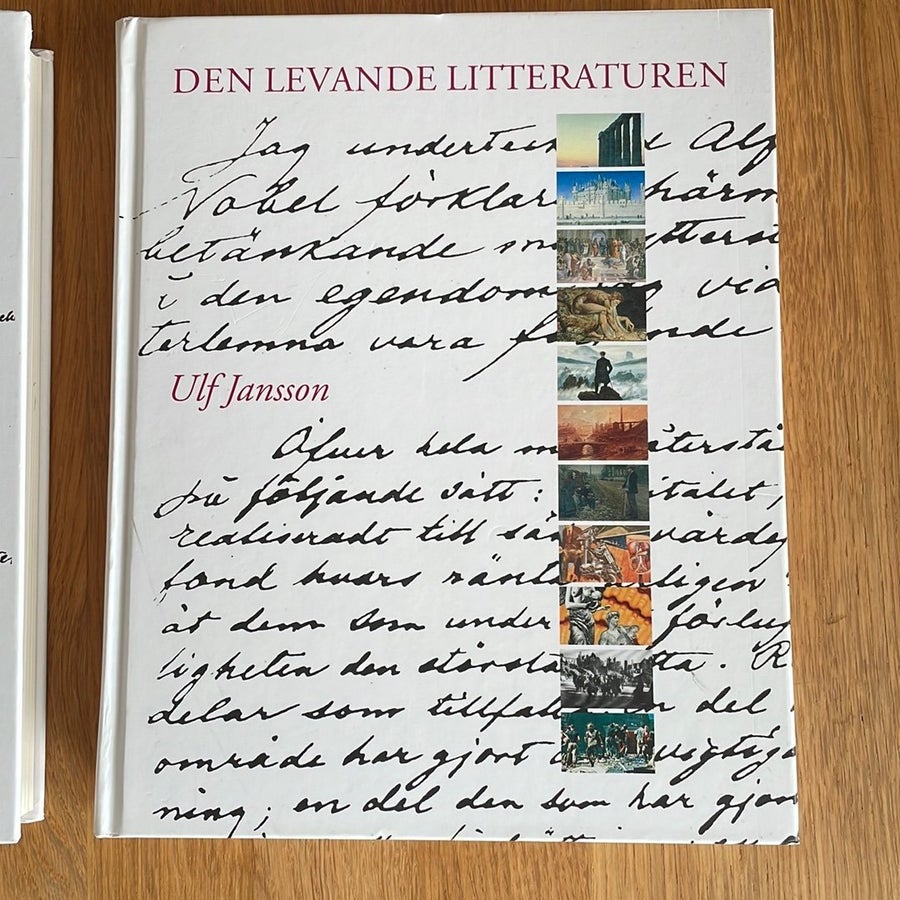 DEN LEVANDE LITTERATUREN
Jag undertecknad Alf
Nobel förklarar härm
betänkande min ytterst
i den egendom jag vid
terlemna vara följande
Ulf Jansson
Öfver hela min återstå
på följande sätt: kapitalet,
realiseradt till säkra värdep
fond hvars ränta årligen
åt dem som under förlup
ligheten den största nytta. R
delar som tillfalla: en del
område har gjort den vigtiga
ning; en del den som har gjor